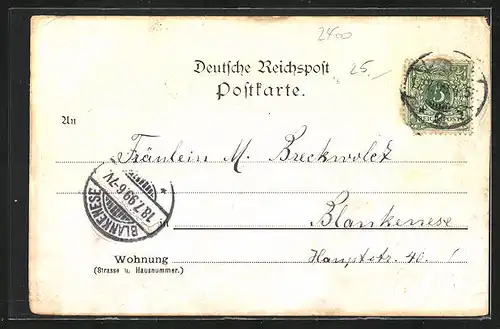 2400
25.-
Deutsche Reichspost
Postkarte.
5
REICHSPOST
An
Fräulein M. Breckwoldt
BLANKENESE
18.7.99.6-7N.
in
Blankenese
Wohnung
Hauptstr. 40. !
(Strasse u. Hausnummer.)